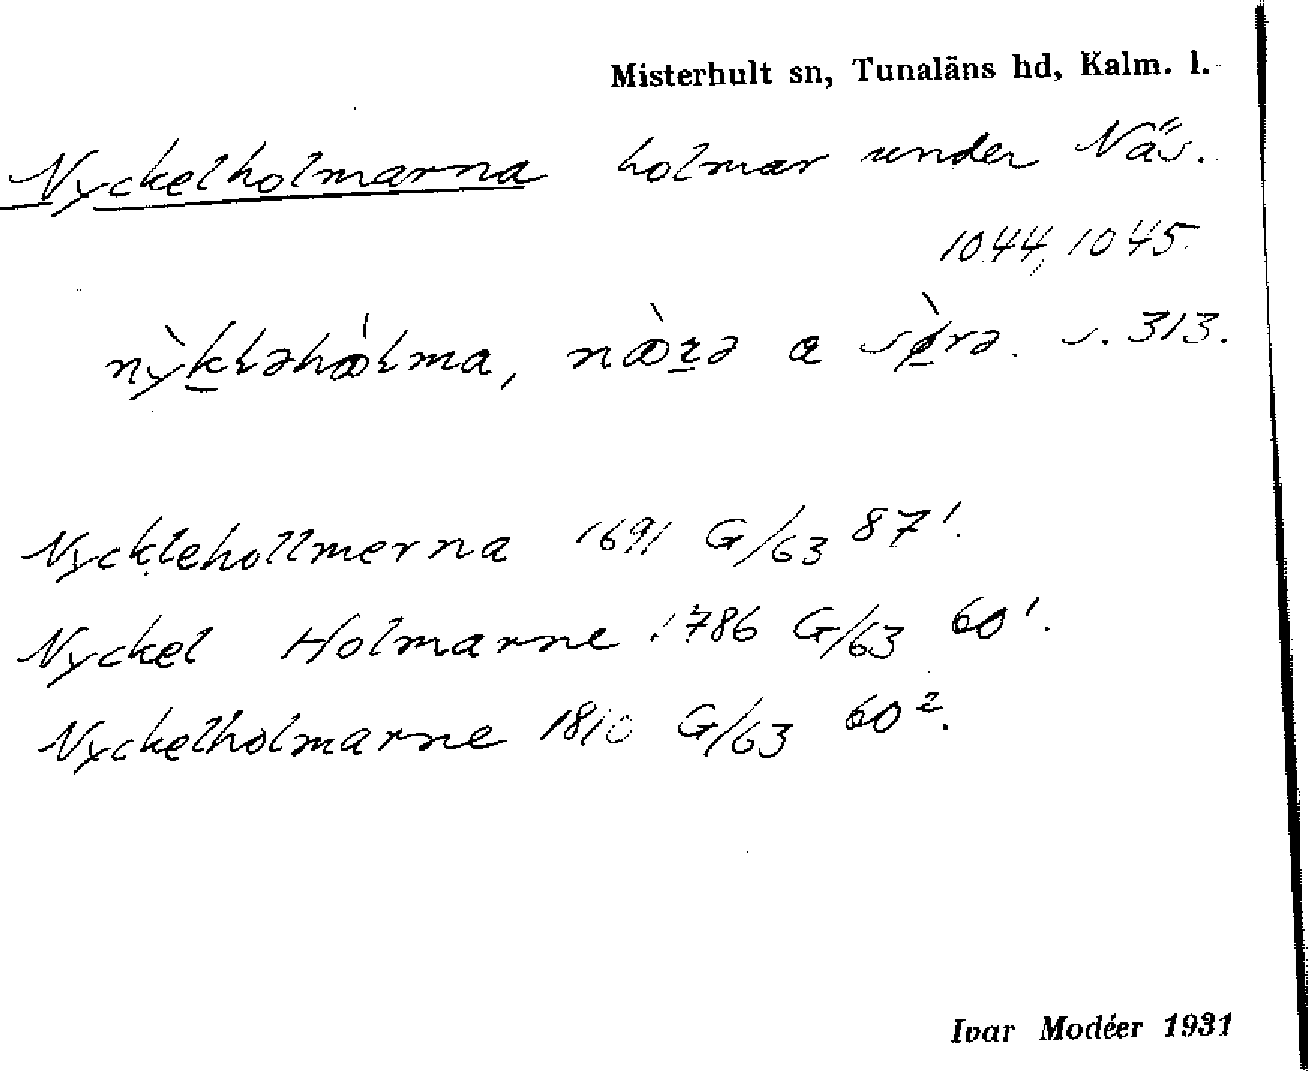 Misterhult sn, Tunaläns hd, Kalm. l.
Nyckelholmarna holmar under Näs.
1044, 1045.
s. 313.
Nycklehollmerna 1691 G/63 87¹.
Nyckel Holmarne 1786 G/63 60¹.
Nyckelholmarne 1810 G/63 60².
Ivar Modéer 1931